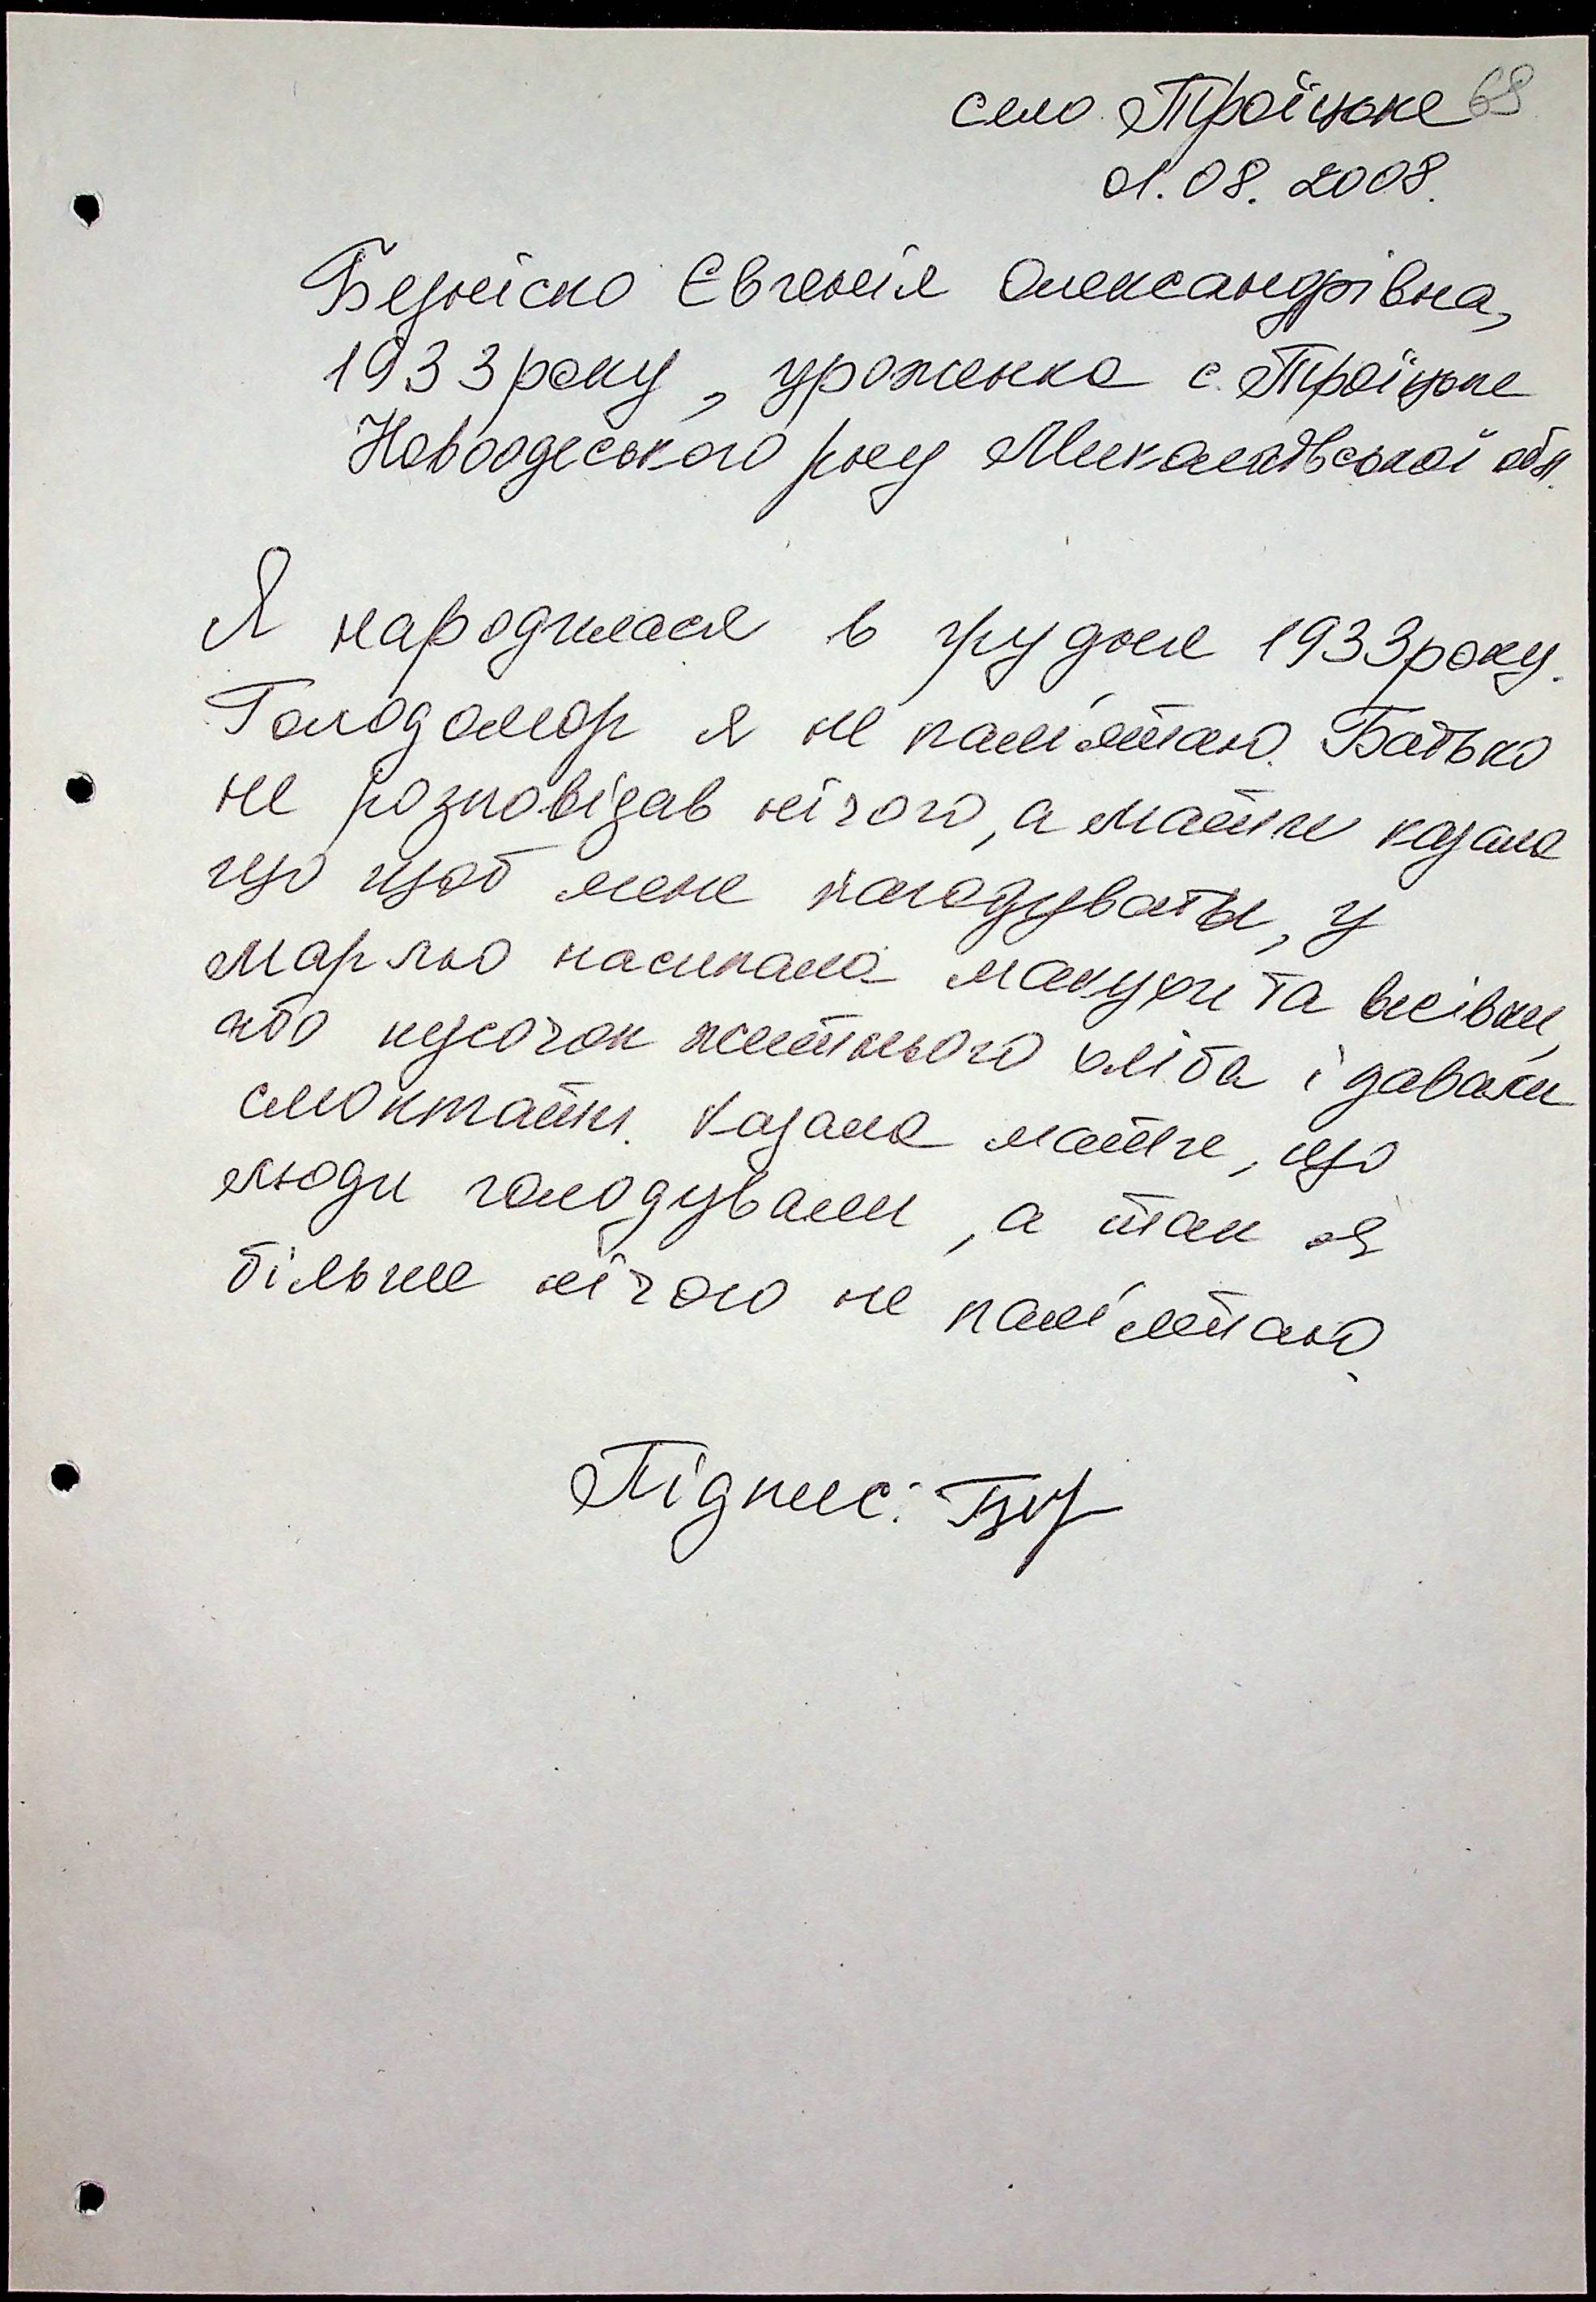 село Троїцьке 68
01.08.2008.
Безніско Євгенія Олександрівна,
1933 року, уроженка с. Троїцьке
Новоодеського р-ну Миколаївської обл.
Я народилася в грудне 1933 року.
Голодомор я не пам'ятаю. Батько
не розповідав нічого, а мати казала
що щоб мене нагодувати, у
марлю насипала макухи та висівки,
або кусочок житнього хліба і давали
смоктати. Казала мати, що
люди голодували, а так я
більше нічого не пам'ятаю.
Підпис: